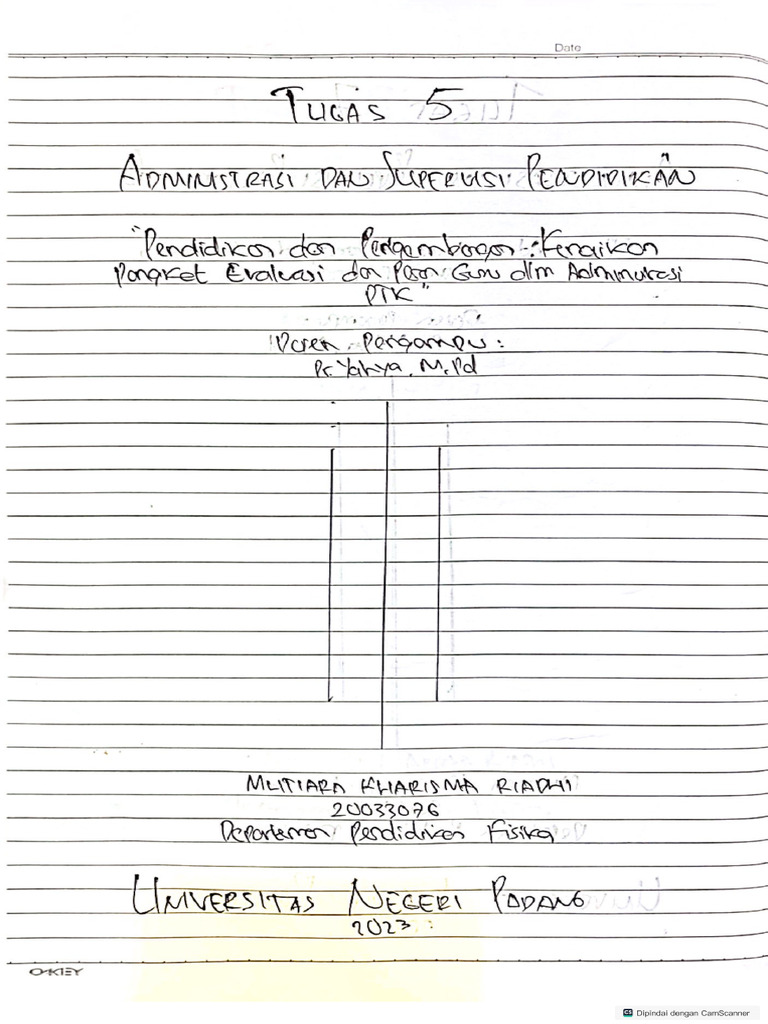 Date
TUGAS 5
ADMINISTRASI DAN SUPERVISI PENDIDIKAN
"Pendidikan dan Pengembangan : Kenaikan
Pangkat Evaluasi dan Peran Guru dlm Administrasi
PTK"
Dosen Pengampu :
Dr. Yahya, M.Pd
MUTIARA KHARISMA RIADHI
20033076
Departemen Pendidikan Fisika
UNIVERSITAS NEGERI PADANG
2023
OAKLEY
CS Dipindai dengan CamScanner